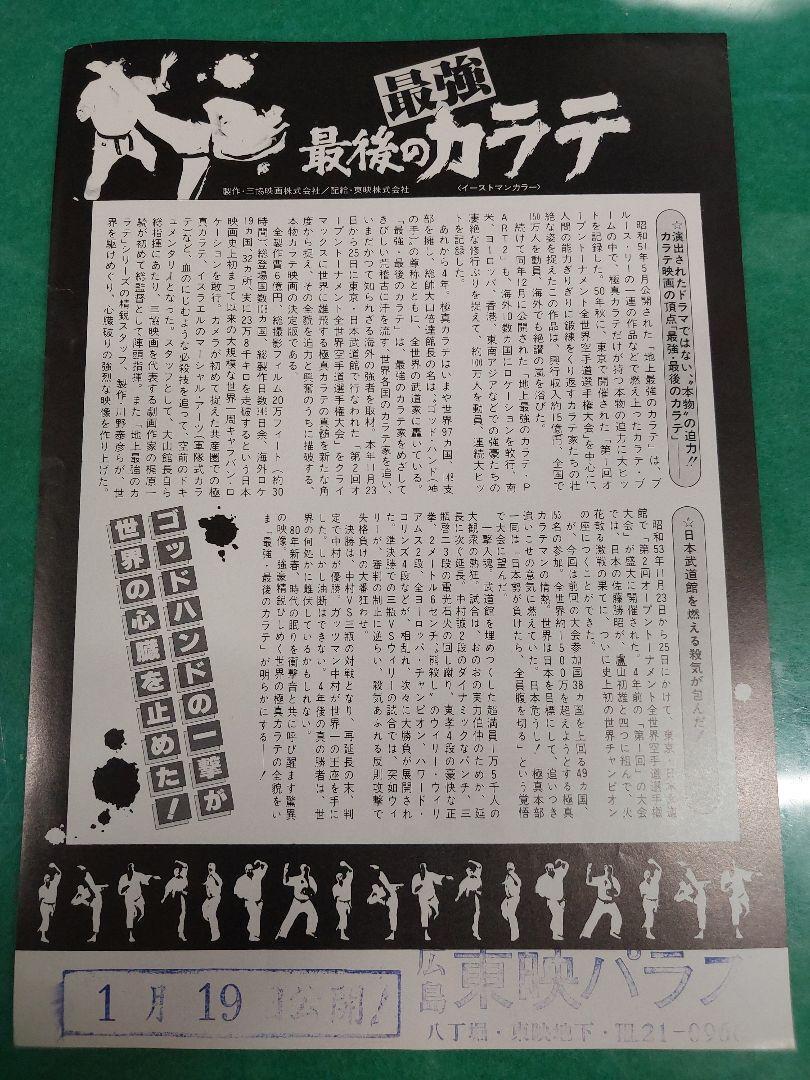 最強
最後のカラテ
製作・三協映画株式会社／配給・東映株式会社
〈イーストマンカラー〉
☆演出されたドラマではない、〝本物〟の迫力!!
カラテ映画の頂点「最強・最後のカラテ」
昭和51年5月公開された「地上最強のカラテ」は、ブ
ルース・リーの一連の作品などで燃え上ったカラテ・ブ
ームの中で、極真カラテだけが持つ本物の迫力に大ヒッ
トを記録した。50年秋に、東京で開催された「第1回オ
ープントーナメント全世界空手道選手権大会」を中心に、
人間の能力ぎりぎりに鍛練をくり返すカラテ家たちの壮
絶な姿を捉えたこの作品は、興行収入約15億円、全国で
150万人を動員、海外でも絶讃の嵐を浴びた。
続けて同年12月に公開された「地上最強のカラテ・P
ART2」も、海外10数カ国にロケーションを敢行、南
米、ヨーロッパ、香港、東南アジアなどでの強豪たちの
凄絶な修行ぶりを捉えて、約100万人を動員、連続大ヒッ
トを記録した。
あれから4年、極真カラテはいまや世界97カ国、48支
部を擁し、総帥大山倍達館長の名は〝ゴッド・ハンド(神
の手)〟の尊称とともに、全世界の武道家に轟いている。
「最強・最後のカラテ」は、最強のカラテ家をめざして
きびしい荒稽古に汗を流す世界各国のカラテ家を追い、
いまだかつて知られざる海外の強者を取材、本年11月23
日から25日に東京・日本武道館で行なわれた「第2回オ
ープントーナメント全世界空手道選手権大会」をクライ
マックスに世界に雄飛する極真カラテの真髄を新たな角
度から捉え、その全貌を迫力と興奮のうちに描破する、
本物カラテ映画の決定版である。
全製作費6億円、総撮影フィルム20万フィート(約30
時間)、総登場国数13カ国、総製作日数345日余、海外ロケ
19カ国、32カ所、実に23万8千キロを走破するという日本
映画史上初まって以来の大規模な世界一周キャラバン・ロ
ケーションを敢行。カメラが初めて捉えた共産圏での極
真カラテ、イスラエルのマーシャル・アーツ(軍隊式カラ
テ)など、血のにじむような必殺技を追って、空前のドキ
ュメンタリーとなった。スタッフとして、大山館長自ら
総指揮にあたり、三協映画を代表する劇画作家の梶原一
騎が初めて総監督として陣頭指揮。また「地上最強のカ
ラテ」シリーズの精鋭スタッフ、製作・川野泰彦らが、世
界を駆けめぐり、心臓破りの強烈な映像を作り上げた。
☆日本武道館を燃える殺気が包んだ！
昭和53年11月23日から25日にかけて、東京・日本武道
館で「第2回オープントーナメント全世界空手道選手権
大会」が盛大に開催された。4年前の「第1回」の大会
では、日本の佐藤勝昭が、盧山初雄と四つに組んで、火
花散る激戦の果てに、ついに史上初の世界チャンピオン
の座につくことができた。
が、今回は前回の大会参加国36カ国を上回る49カ国、
の参加。全世界約1500万を超えようとする極真
カラテマンの情熱。世界は日本を目標にして、追いつき
追いこせの意気に燃えていた。日本危うし！極真本部
一同は「日本勢が負けたら、全員腹を切る」という覚悟
で大会に望んだ。
一撃入魂、武道館を埋めつくした超満員1万5千人の
大観衆の熱狂。試合は、おのおの実力伯仲のためか、延
長に次ぐ延長。中村誠2段のダイナミックなパンチ、三
瓶啓二3段の電光石火の回し蹴り、東孝4段の豪快な正
拳、2メートル6センチ、〝熊殺し〟のウイリー・ウィリ
アムス2段、全ヨーロッパ・チャンピオン、ハワード・
コリンズ4段などが、相乱れ、次々に大勝負が展開され
た。準決勝での三瓶VSウィリーの試合では、突如ウイ
リーが、審判の制止に逆らい、殺気あふれる反則攻撃で
失格負けの大番狂わせ。
決勝は、中村VS三瓶の対戦となり、再延長の末、判
定で中村が優勝。ガッツマン中村が世界一の王座を手に
した。しかし油断はできない。4年後の真の勝者は、世
界の何処かに雌伏しているかもしれない。
80年新春、時代の眠りを衝撃音と共に呼び醒ます驚異
の映像、強豪精鋭ひしめく世界の極真カラテの全貌をい
ま「最強・最後のカラテ」が明らかにする――！
ゴッドハンドの一撃が
世界の心臓を止めた！
1月19日公開！
広島東映パラス
八丁堀・東映地下・TEL21-096